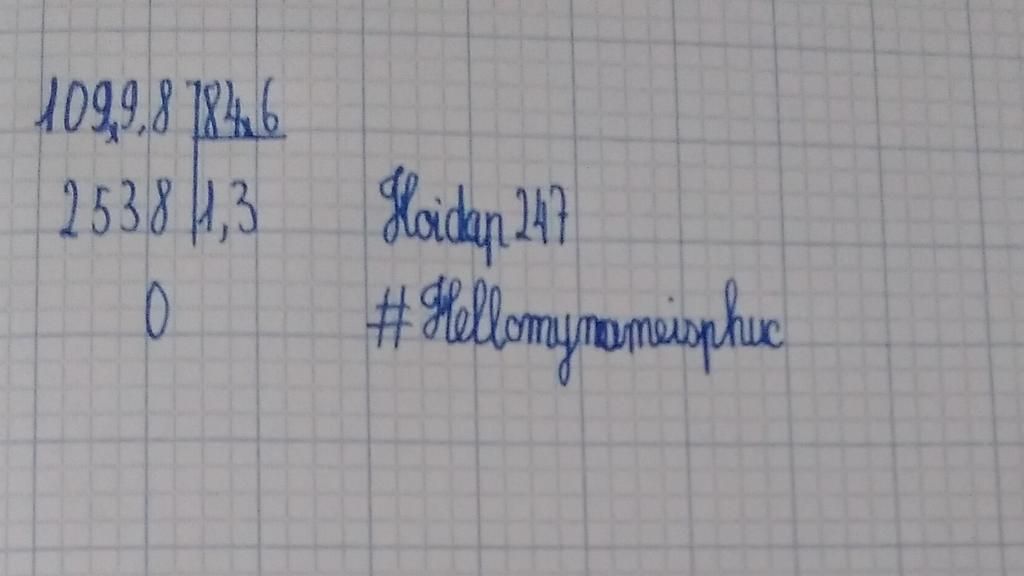 109,9,8 84,6
2538 1,3
Hoidap 247
0
#Hellomynameisphuc